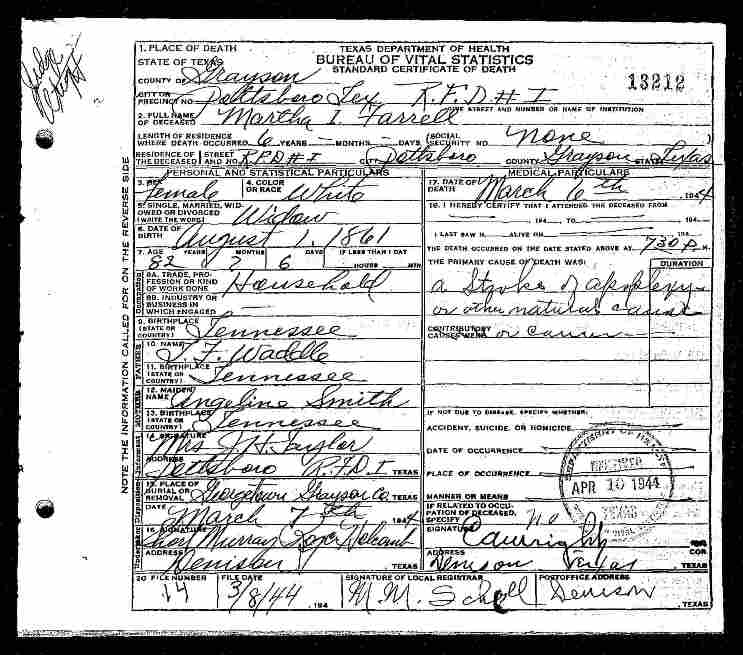 1. PLACE OF DEATH
STATE OF TEXAS
TEXAS DEPARTMENT OF HEALTH
BUREAU OF VITAL STATISTICS
STANDARD CERTIFICATE OF DEATH
13212
COUNTY OF Grayson
CITY OR PRECINCT NO. Pottsboro Tex R.F.D # I
GIVE STREET AND NUMBER OR NAME OF INSTITUTION
2. FULL NAME OF DECEASED Martha I. Farrell
LENGTH OF RESIDENCE WHERE DEATH OCCURRED 6 YEARS - MONTHS - DAYS SOCIAL SECURITY NO. None
RESIDENCE OF THE DECEASED STREET AND NO. R.F.D # I CITY Pottsboro COUNTY Grayson STATE Texas
PERSONAL AND STATISTICAL PARTICULARS
3. SEX Female 4. COLOR OR RACE White
5. SINGLE, MARRIED, WIDOWED OR DIVORCED (WRITE THE WORD) Widow
6. DATE OF BIRTH August 1, 1861
7. AGE YEARS MONTHS DAYS IF LESS THAN 1 DAY
82 7 6 HOURS MIN
8A. TRADE, PROFESSION OR KIND OF WORK DONE Household
8B. INDUSTRY OR BUSINESS IN WHICH ENGAGED
9. BIRTHPLACE (STATE OR COUNTRY) Tennessee
10. NAME J. F. Waddle
11. BIRTHPLACE (STATE OR COUNTRY) Tennessee
12. MAIDEN NAME Angeline Smith
13. BIRTHPLACE (STATE OR COUNTRY) Tennessee
14. SIGNATURE Mrs J. H. Taylor
ADDRESS Pottsboro R.F.D.I TEXAS
15. PLACE OF BURIAL OR REMOVAL Georgetown Grayson Co. TEXAS
DATE March 7th 1944
16. SIGNATURE Murray Roger Holcomb
ADDRESS Denison TEXAS
MEDICAL PARTICULARS
17. DATE OF DEATH March 6th 1944
18. I HEREBY CERTIFY THAT I ATTENDED THE DECEASED FROM
194 , TO 194
I LAST SAW H ALIVE ON 194
THE DEATH OCCURRED ON THE DATE STATED ABOVE AT 730 P. M.
THE PRIMARY CAUSE OF DEATH WAS: DURATION
a Stroke of apoplexy
or other natural cause
CONTRIBUTORY CAUSES WERE or cancer
IF NOT DUE TO DISEASE, SPECIFY WHETHER:
ACCIDENT, SUICIDE, OR HOMICIDE
DATE OF OCCURRENCE
PLACE OF OCCURRENCE
MANNER OR MEANS
IF RELATED TO OCCUPATION OF DECEASED, SPECIFY no
SIGNATURE
ADDRESS Denison Texas TEXAS
COR
DEPARTMENT OF HEALTH
RECEIVED
APR 10 1944
TEXAS
20 FILE NUMBER 14
FILE DATE 3/8/44 , 194
SIGNATURE OF LOCAL REGISTRAR M. M. Scholl
POSTOFFICE ADDRESS Denison , TEXAS
NOTE THE INFORMATION CALLED FOR ON THE REVERSE SIDE
Occupation
FATHER
MOTHER
Informant
Disposition
Undertaker